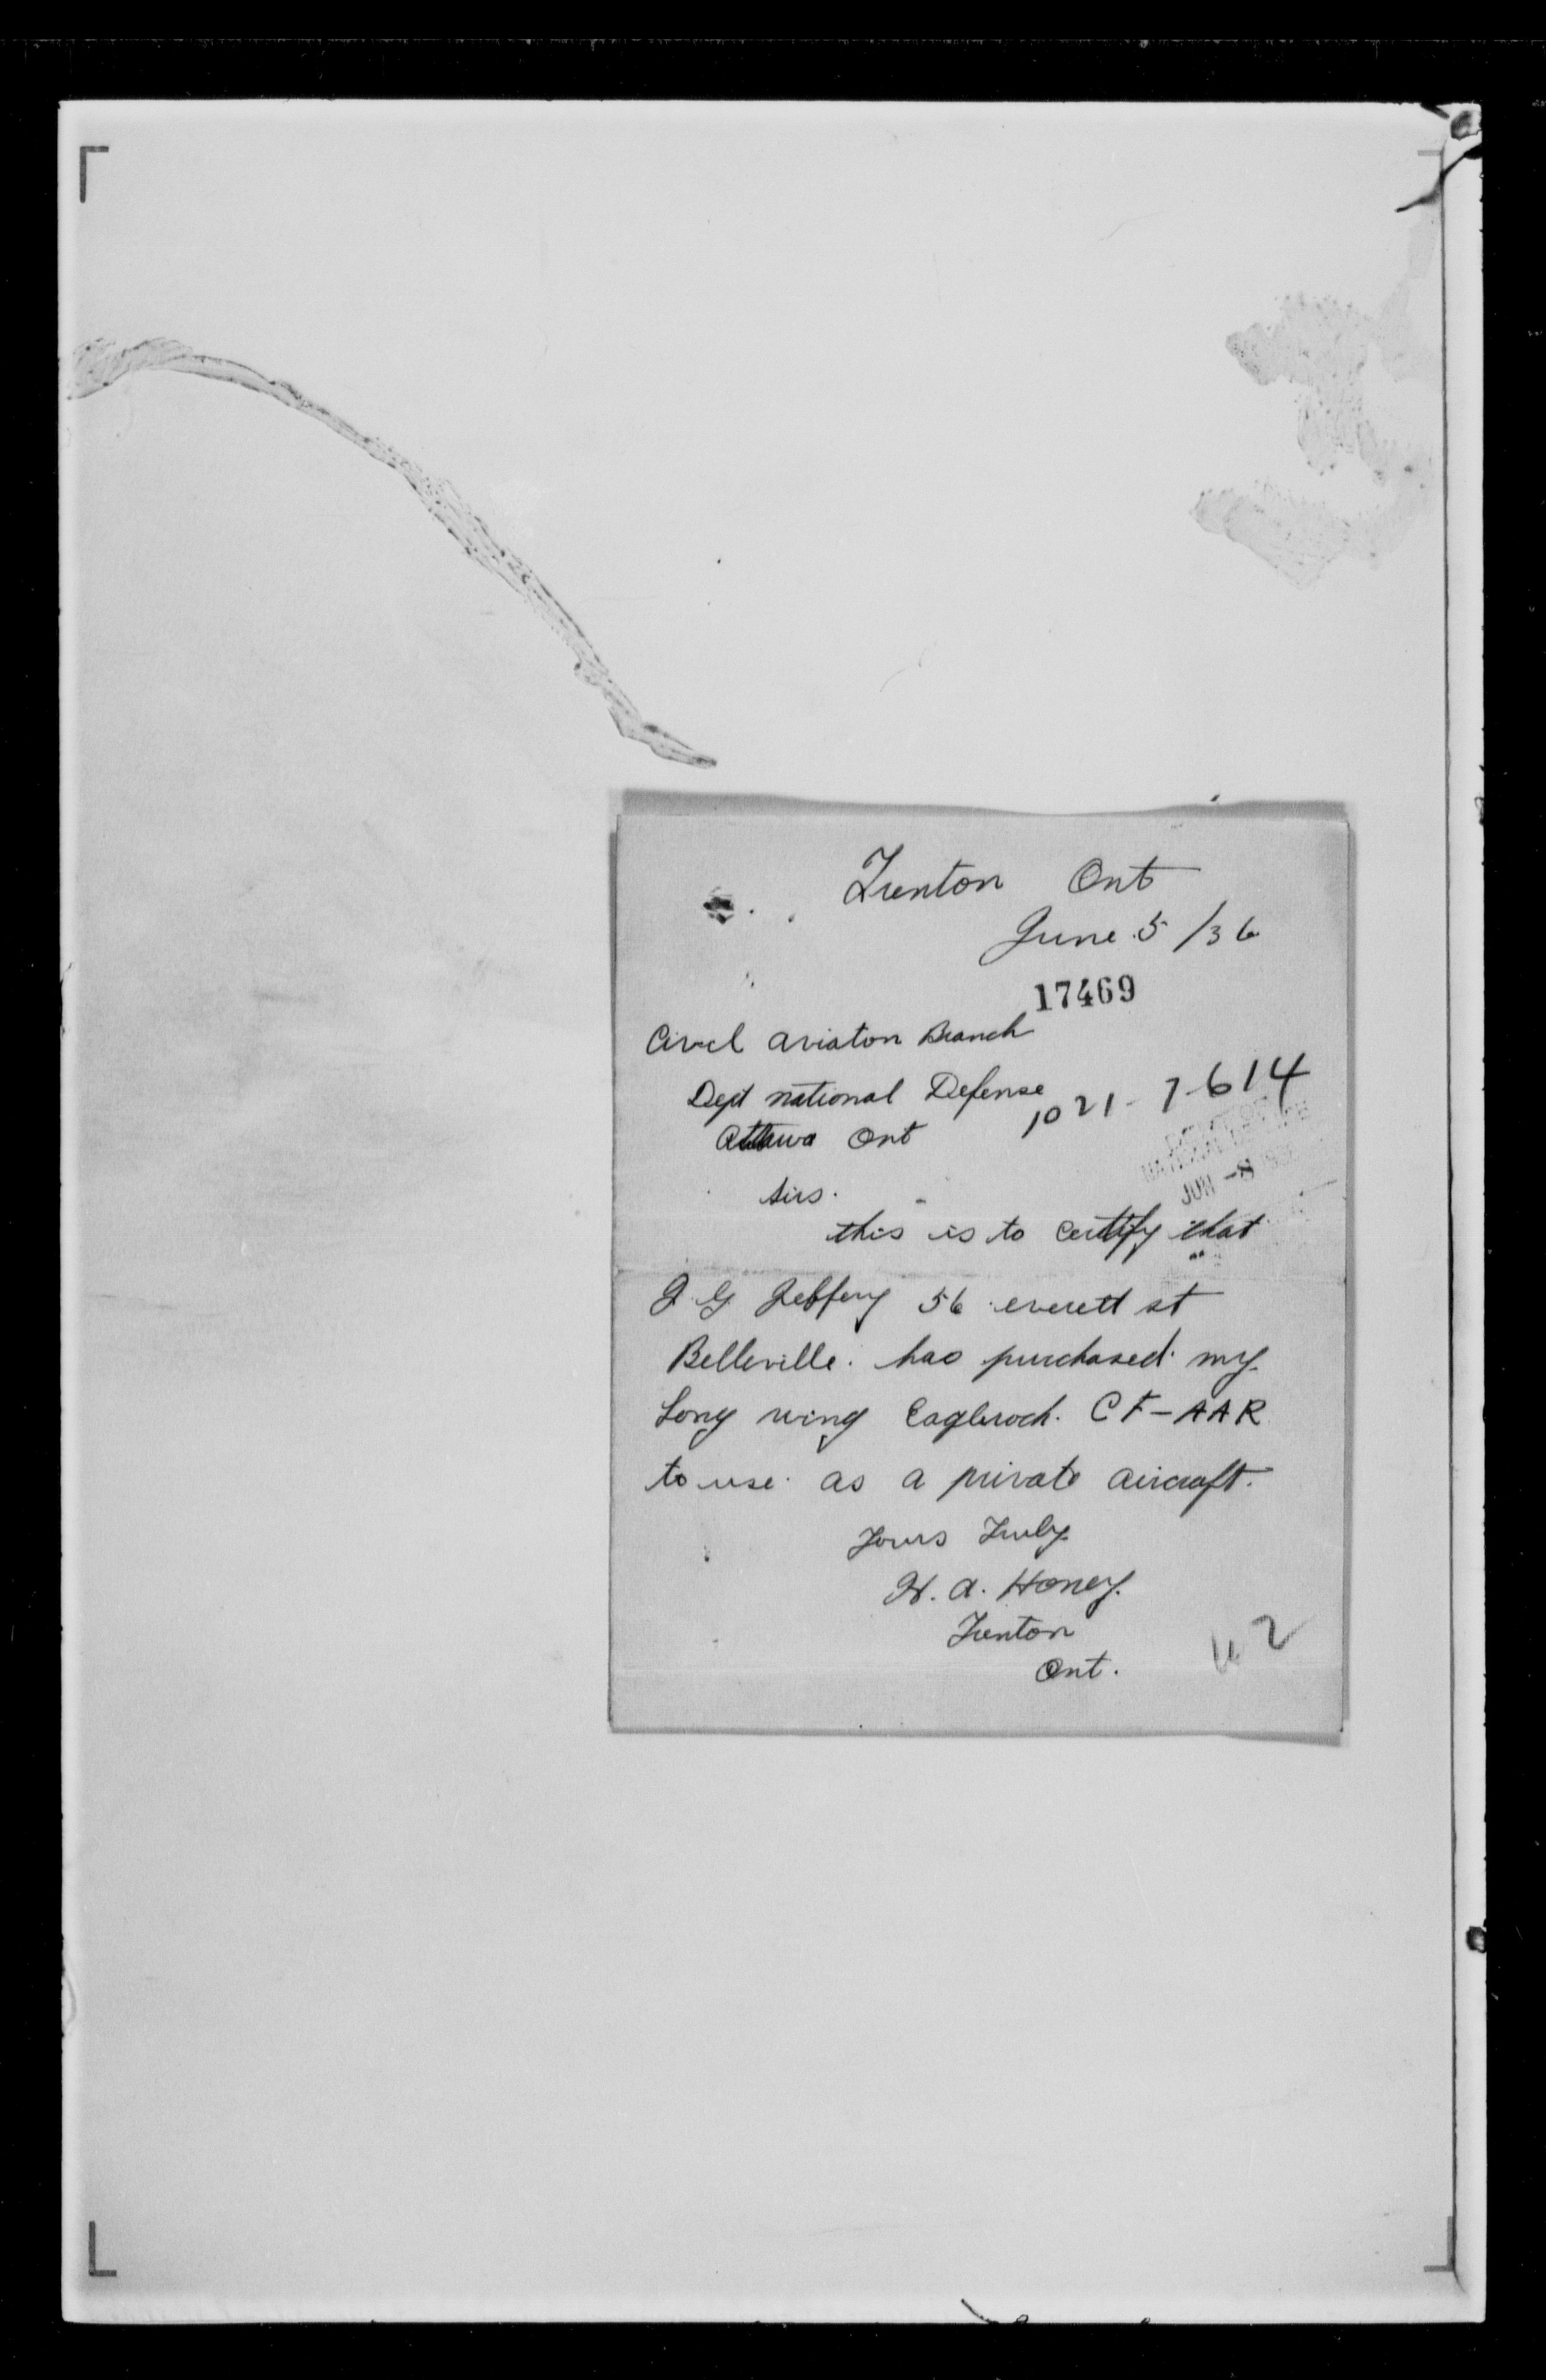 Trenton Ont
June 5/36
17469
Civil Aviaton Branch
Dept national Defense
1021-7-614
Ottawa Ont
DEPT OF
NATIONAL DEFENCE
JUN -8 1936
Sirs.
this is to certify that
J G Jeffery 56 everett st
Belleville. has purchased my
Long wing Eaglerock. CF-AAR
to use as a private aircraft.
Yours Truly.
H. A. Honey.
Trenton
Ont.
42